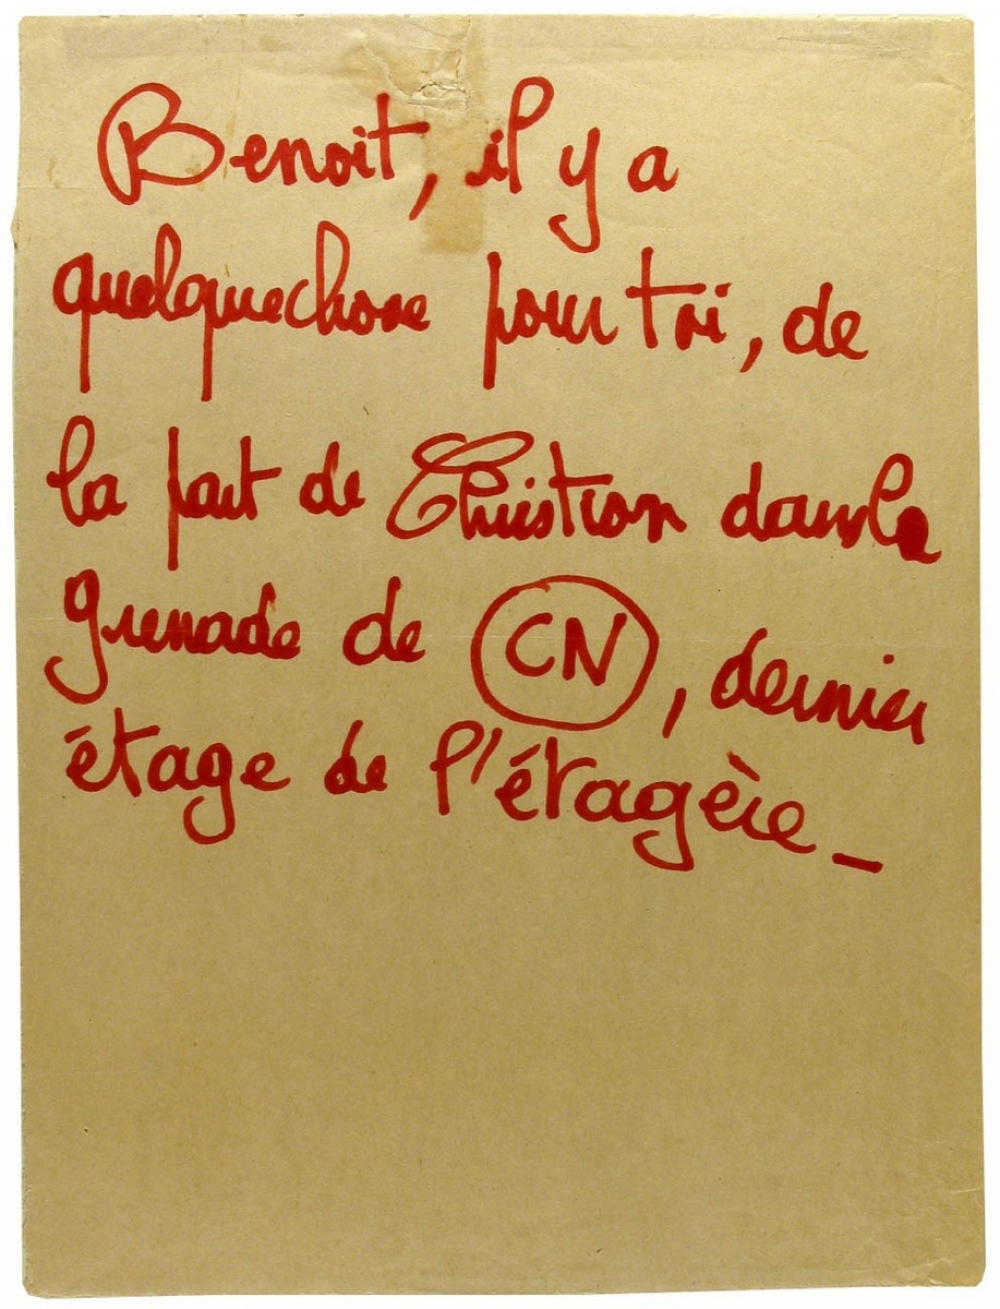 Benoit, il y a
quelquechose pour toi, de
la part de Christian dans la
grenade de CN, dernier
étage de l'étagère_